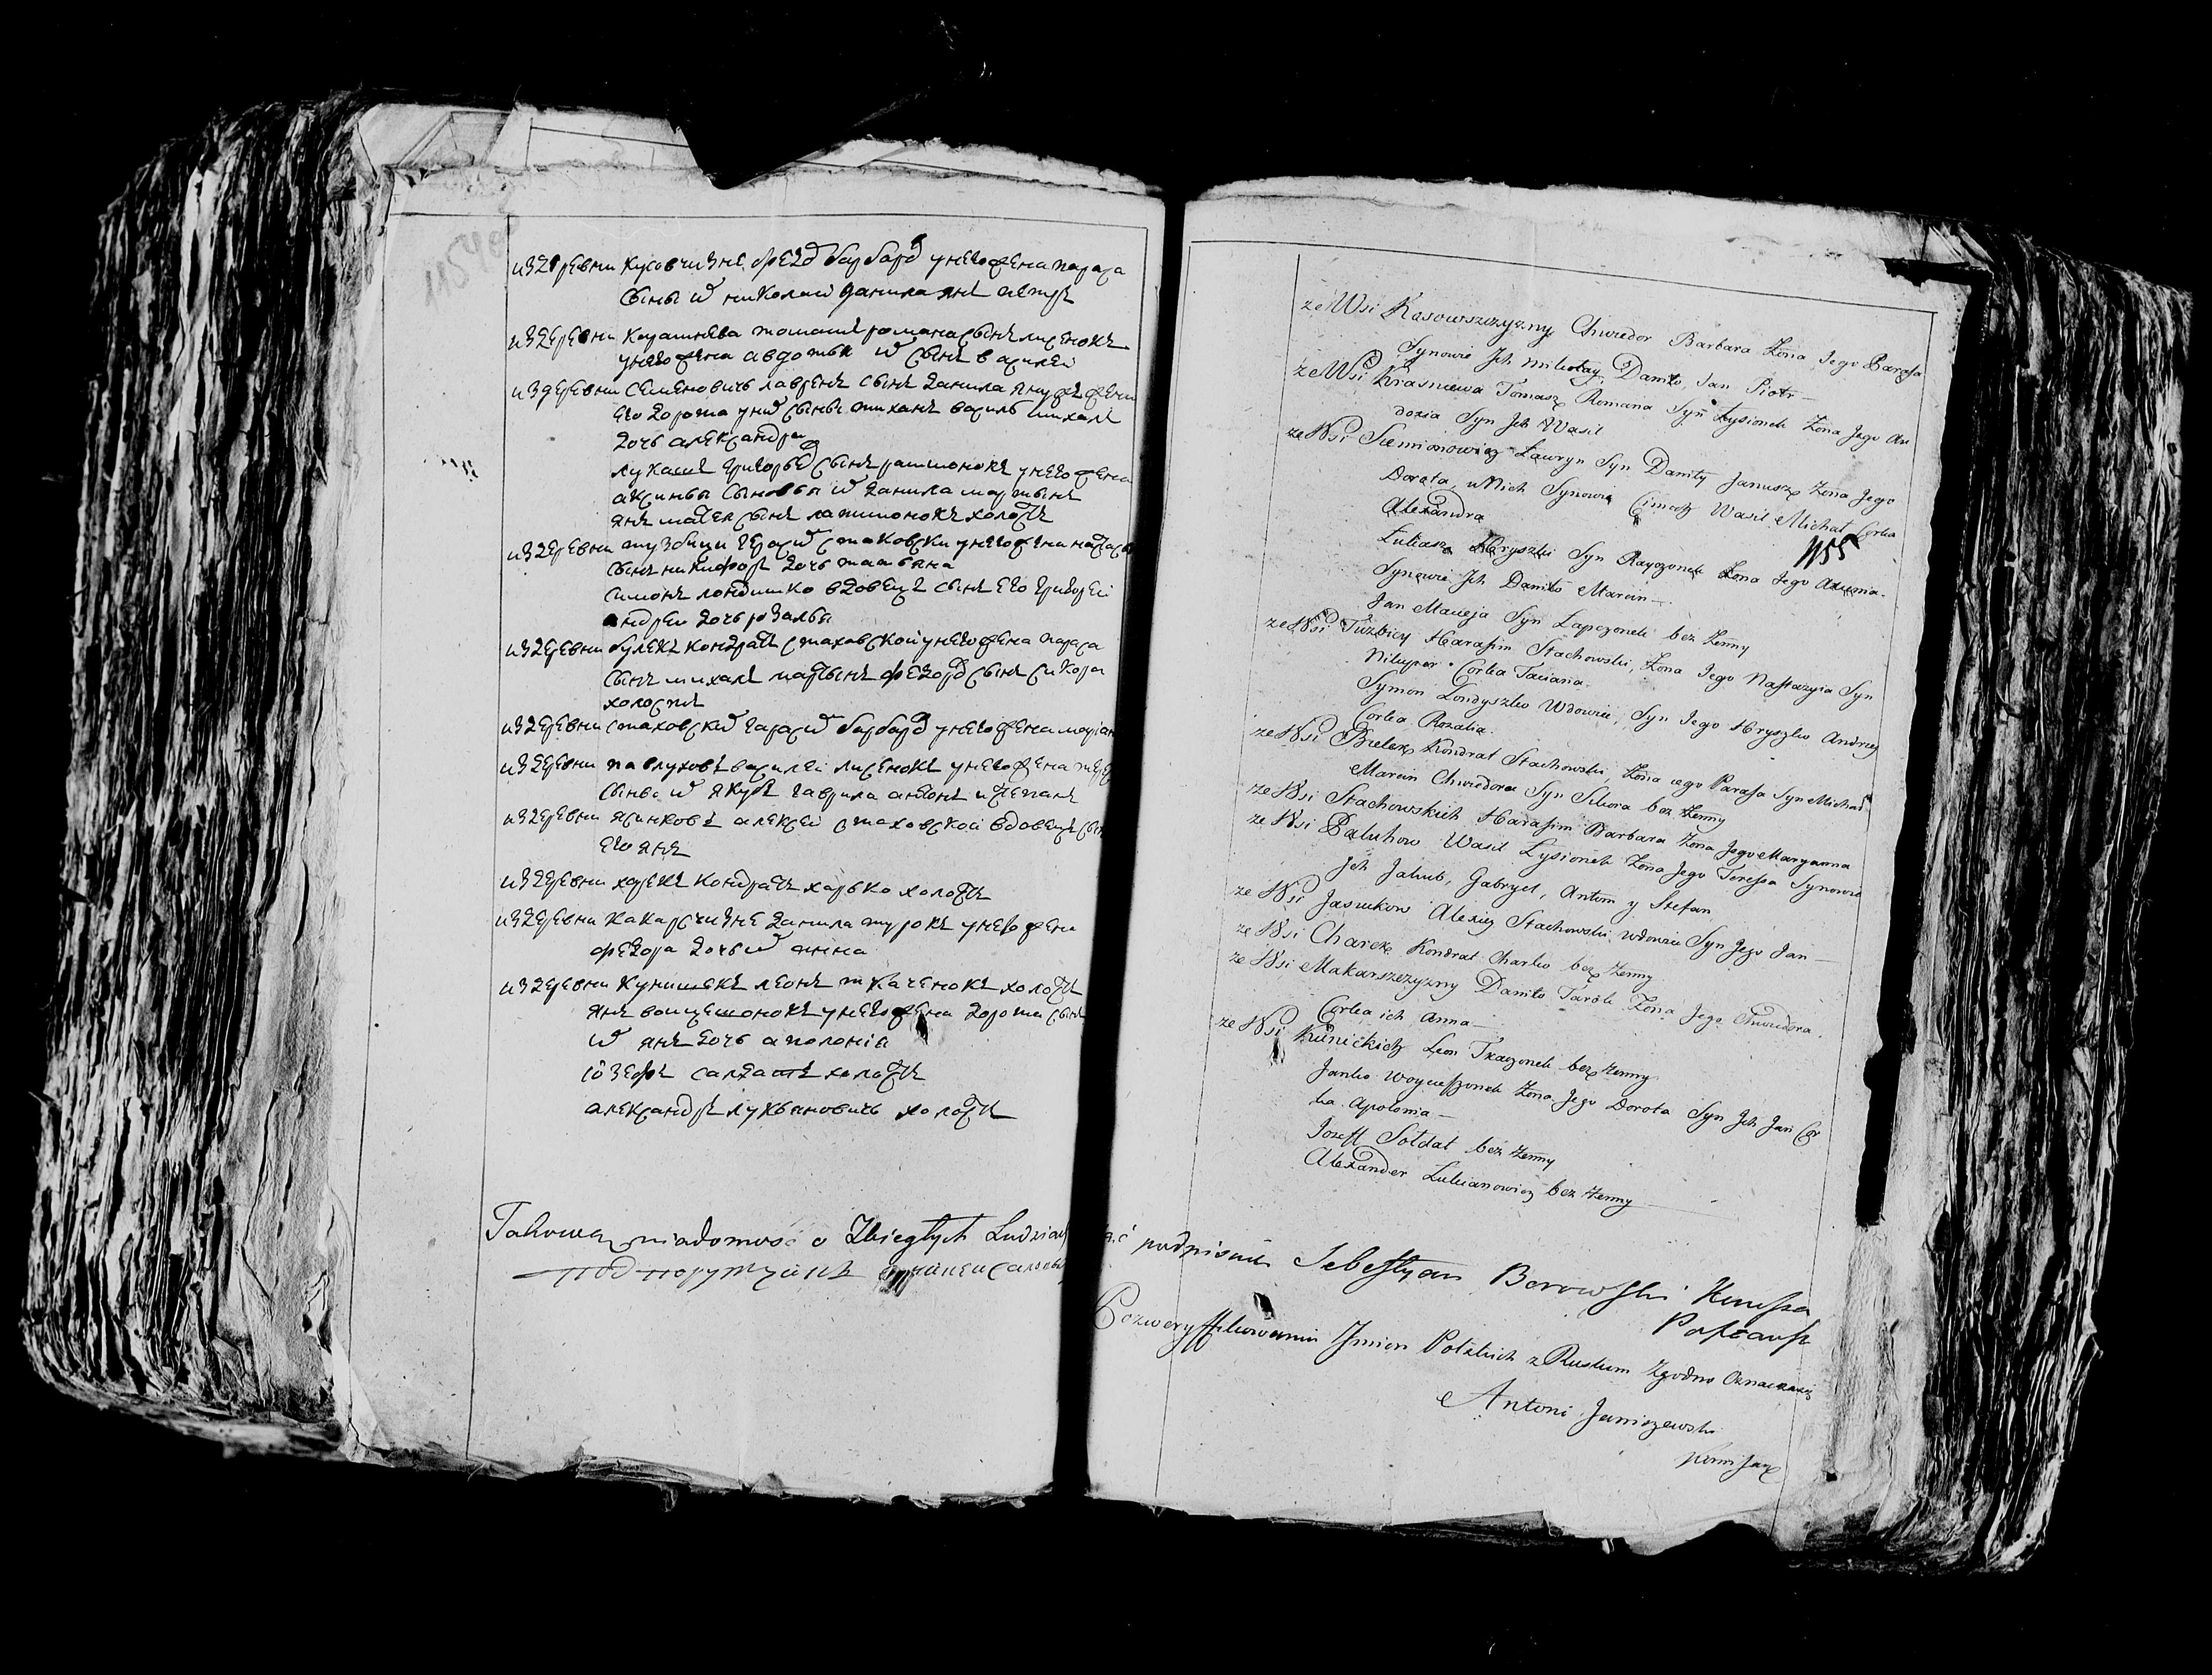 из деревни Кусовчизне федор барбара у него жена параса
сыны их николай данила янъ петръ
из деревни Карашнева томашъ романа сынъ лисенокъ
у него жена авдотья их сынъ василеи
из деревни Семеновичь лавренъ сынъ данила янушъ жена
его дорота у них сыны михаль
дочь александра
лукашъ григорьев сынъ у него жена
сыновья их данила мартынъ
янъ мацея сынъ лапшонокъ холостъ
из деревни тузбици стаховски у него жена
сынъ никифоръ дочь татьяна
симонъ лондышко вдовецъ сынъ его григореи
андреи дочь розалья
из деревни булекъ кондратъ стаховской у него жена параса
сынъ михалъ мартынъ федора сынъ сикора
холостъ
из деревни стаховских гарасим барбара у него жена мариана
из деревни павлуховъ василеи лисенокъ у него жена
сынове их якубъ гаврила антонъ и степанъ
из деревни ясинковъ алексеи стаховской вдовецъ сынъ
его янъ
из деревни харекъ кондратъ харько холостъ
из деревни макарсчизне данила турокъ у него жена
федора дочь их анна
из деревни Куницекъ леонъ ткаченокъ холостъ
янъ воицешонокъ у него жена дорота сынъ
их янъ дочь аполонія
іозефъ салдатъ холостъ
александръ лукьяновичь холостъ
Takową wiadomość o Zbiegłych Ludziach
подпорутчикъ
1155
ze Wsi Kosowszczyzny Chwiedor Barbara Żona Jego Parasa
Synowie Jch Mikołay, Daniło, Jan Piotr
ze Wsi Krasniewa Tomasz Romana Syn Łysionek Żona Jego Au
dozia Syn Jch Wasil
ze Wsi Siemionowicz Ławryn Syn Daniły Janusz Żona Jego
Dorata, u Nich Synowie Wasil Michał Corka
Alexandra
Łukasz Hryszki Syn Rayczonek Żona Jego Axienia
Synowie Jch Daniło Marcin
Jan Macieja Syn Łapczonek bez Żenny
ze Wsi Tuzbicy Harasim Stachowski, Żona Jego Nastazyia Syn
Nikiper Corka Taciana
Symon Londyszko Wdowiec, Syn Jego Hryszko Andrzey
Corka Rozalia
ze Wsi Bulex Kondrat Stachowski, Żona iego Parasa Syn Michał
Marcin Chwiedora Syn Sikora bez Żenny
ze Wsi Stachowskich Harasim Barbara Żona Jego Maryanna
ze Wsi Paluhow Wasil Łysionek Żona Jego Teressa Synowie
Jch Jakub, Gabryel, Anton y Stefan
ze Wsi Jasinkow Alexiey Stachowski wdowiec Syn Jego Jan
ze Wsi Charex Kondrat Charko bez Żenny
ze Wsi Makarszczyzny Daniło Turok Żona Jego Chwiedora
Corka ich Anna
ze Wsi Kunickich Leon Tkaczonek bez Żenny
Janko Woyciesonek Żona Jego Dorota Syn Jch Jan Cor
ka Apolonia
Jozeff Sołdat bez Żenny
Alexander Łukianowicz bez Żenny
podpisuie Sebestyan Borowski
Po zweryffikowaniu Jmion Polskich z Ruskim Zgodno Oznaczenie
Antoni Janiszewski